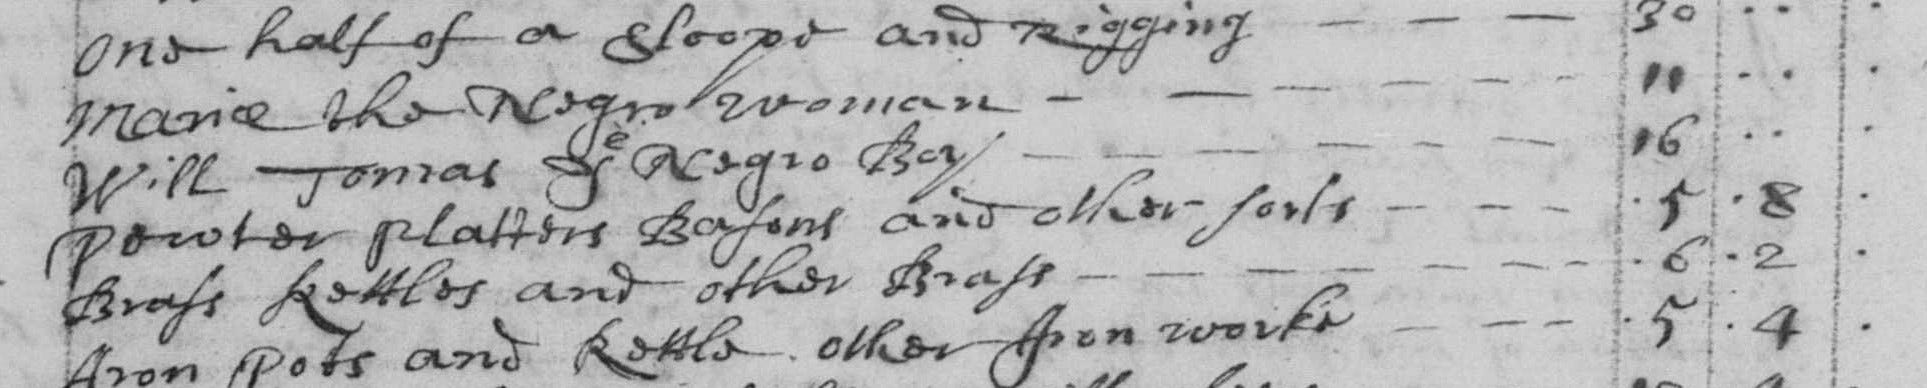 One half of a sloope and Rigging — — — 30 .. .
Marie the Negro woman - — — — — — 11 .. .
Will Tomas ye Negro Boy — — — — — 16 .. .
pewter platters Basons and other sorts - — — — . 5 . 8 .
Brass kettles and other Brass — — — — — — . 6 . 2 .
Iron pots and kettle other Iron worke — — — . 5 . 4 .